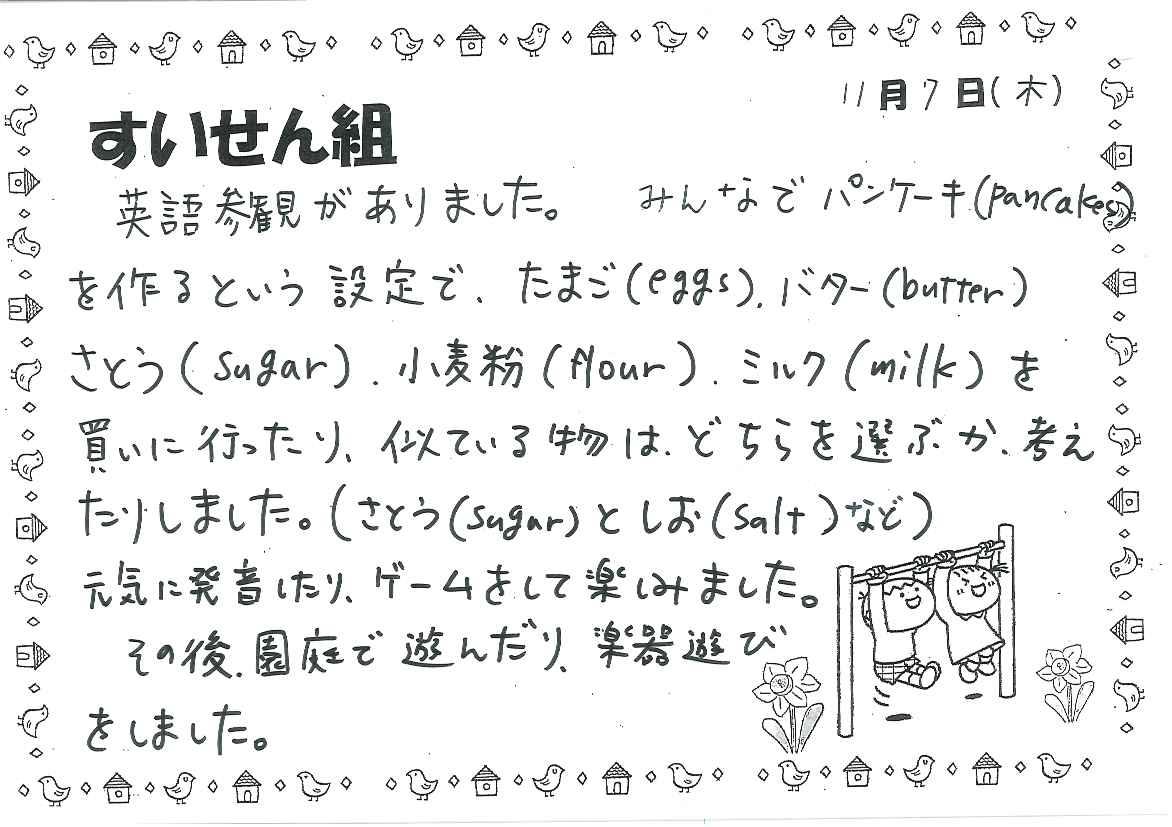 11月7日(木)
すいせん組
英語参観がありました。 みんなでパンケーキ(pancakes)
を作るという設定で、たまご(eggs)、バター(butter)
さとう(sugar)、小麦粉(flour)、ミルク(milk)を
買いに行ったり、似ている物は、どちらを選ぶか、考え
たりしました。(さとう(sugar)としお(salt)など)
元気に発音したり、ゲームをして楽しみました。
その後、園庭で遊んだり、楽器遊び
をしました。